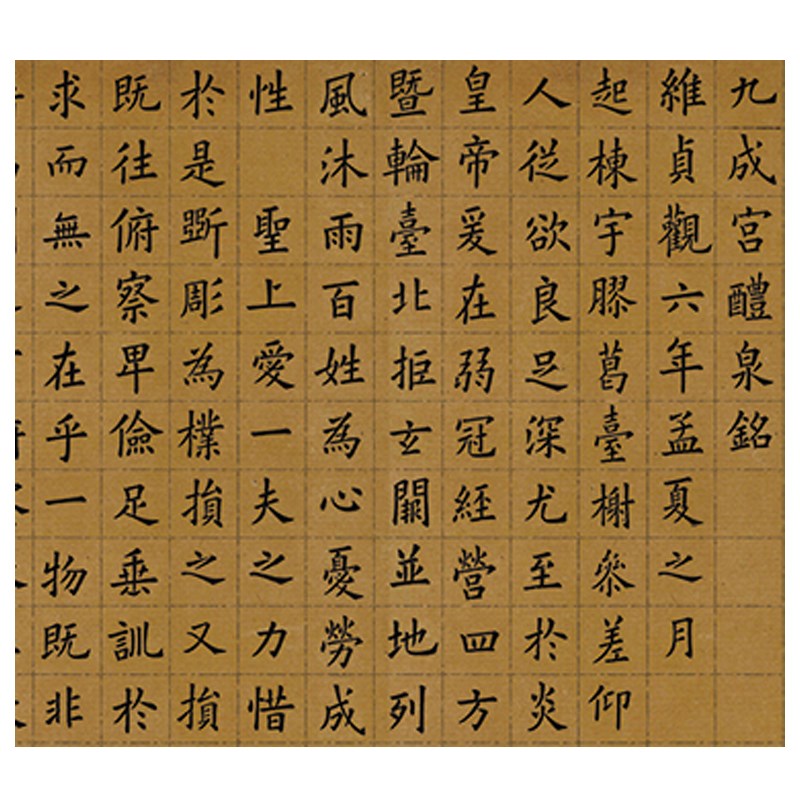 九成宮醴泉銘
維貞觀六年孟夏之月
起棟宇膠葛臺榭參差仰
人從欲良足深尤至於炎
皇帝爰在弱冠經營四方
暨輪臺北拒玄闕並地列
風沐雨百姓為心憂勞成
性 聖上愛一夫之力惜
於是斲彫為樸損之又損
既往俯察卑儉足垂訓於
求而無之在乎一物既非